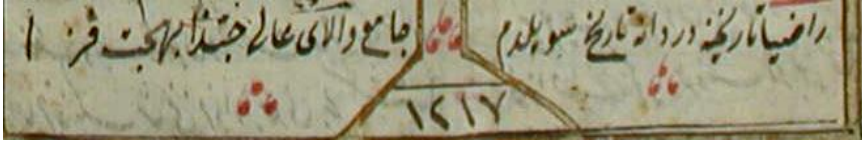 راضیا تاریخنه دردانه تاریخ سویلدم
جامع والای عالی حبذا بهجت فزا
١٢١٧